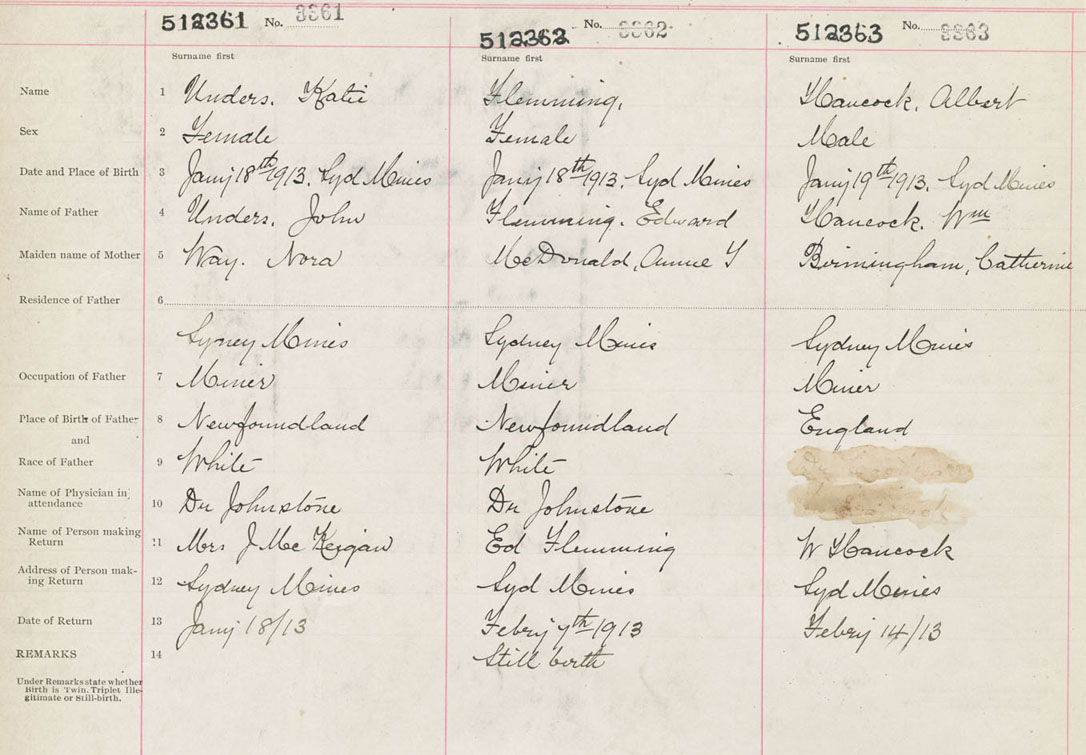 512361 No. 3361 512362 No. 3362 512363 No. 3363
Surname first Surname first Surname first
Name 1 Unders. Katie Flemming. Hancock. Albert
Sex 2 Female Female Male
Date and Place of Birth 3 Jany 18th 1913. Syd Mines Jany 18th 1913. Syd Mines Jany 19th 1913. Syd Mines
Name of Father 4 Unders. John Flemming. Edward Hancock. Wm
Maiden name of Mother 5 Way. Nora McDonald, Annie Birmingham, Catherine
Residence of Father 6
Sydney Mines Sydney Mines Sydney Mines
Occupation of Father 7 Miner Miner Miner
Place of Birth of Father 8 Newfoundland Newfoundland England
and
Race of Father 9 White White
Name of Physician in
attendance 10 Dr Johnstone Dr Johnstone
Name of Person making
Return 11 Mrs J McKeigan Ed Flemming W Hancock
Address of Person mak-
ing Return 12 Sydney Mines Syd Mines Syd Mines
Date of Return 13 Jany 18/13 Febry 7th 1913 Febry 14/13
REMARKS 14 Still birth
Under Remarks state whether
Birth is Twin. Triplet Ille-
gitimate or Still-birth.